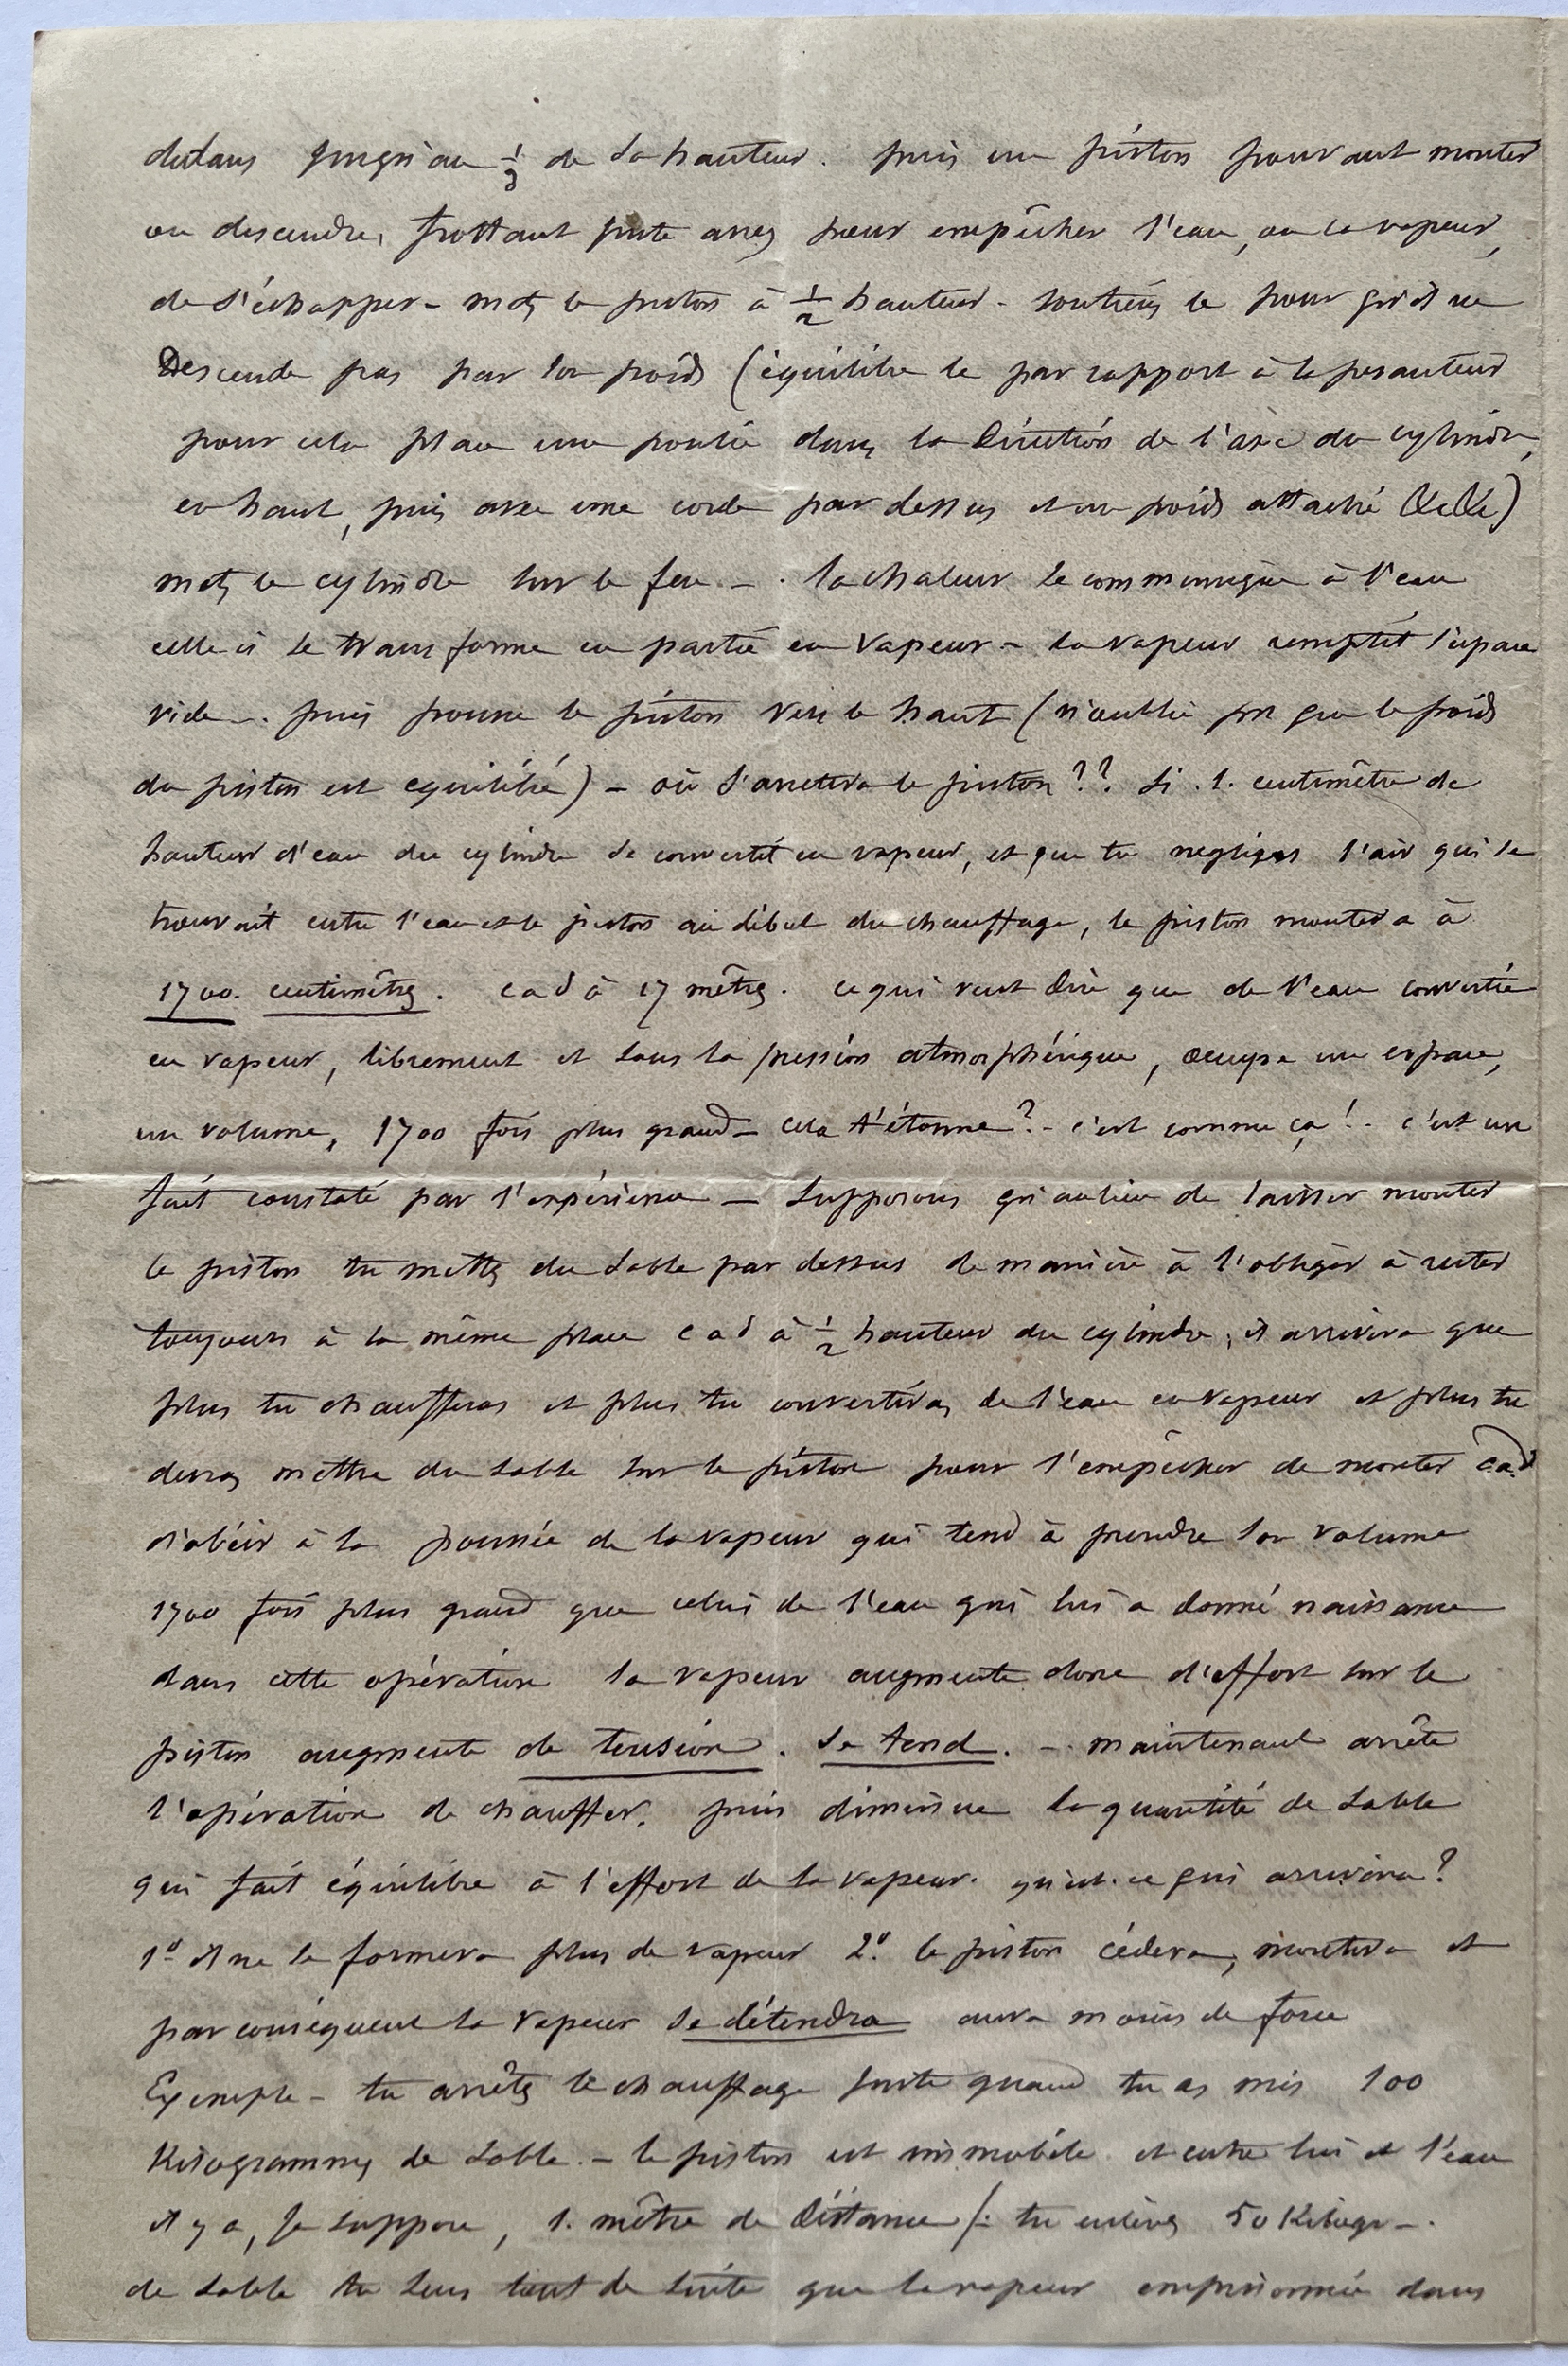 dedans jusqu'au 1/3 de sa hauteur. puis un piston pouvant monter
ou descendre, frottant juste assez pour empêcher l'eau, ou la vapeur,
de s'échapper - mets le piston à 1/2 hauteur - soutiens le pour qu'il ne
Descende pas par son poids (équilibre le par rapport à la pesanteur
pour cela place une poulie dans la direction de l'axe du cylindre,
en haut, puis avec une corde par dessus et un poids attaché)
mets le cylindre sur le feu - . la chaleur se communique à l'eau
celle ci se transforme en partie en vapeur - la vapeur remplit l'espace
vide - . puis pousse le piston vers le haut (n'oublie pas que le poids
du piston est equilibré) - où s'arretera le piston ?? si . 1. centimêtre de
hauteur d'eau du cylindre se convertit en vapeur, et que tu negliges l'air qui se
trouvait entre l'eau et le piston au début du chauffage, le piston montera à
1700. centimêtres. c a d à 17 mêtres. ce qui veut dire que de l'eau convertie
en vapeur, librement et sous la pression atmosphérique, occupe un espace,
un volume, 1700 fois plus grand - cela t'étonne ? - c'est comme ça ! - c'est un
fait constaté par l'expérience - Supposons qu'au lieu de laisser monter
le piston tu mettes du sable par dessus de manière à l'obliger à rester
toujours à la même place c a d à 1/2 hauteur du cylindre, il arrivera que
plus tu chaufferas et plus tu convertiras de l'eau en vapeur et plus tu
devras mettre du sable sur le piston pour l'empêcher de monter c a d
d'obéir à la poussée de la vapeur qui tend à prendre son volume
1700 fois plus grand que celui de l'eau qui lui a donné naissance
dans cette opération la vapeur augmente donc d'effort sur le
piston augmente de tension. se tend. - maintenant arrête
l'opération de chauffer. puis diminue la quantité de sable
qui fait équilibre à l'effort de la vapeur. qu'est-ce qui arrivera ?
1º il ne se formera plus de vapeur 2º. le piston cédera, montera et
par conséquent la vapeur se détendra aura moins de force
Exemple - tu arrêtes le chauffage juste quand tu as mis 100
Kilogrammes de sable. - le piston est immobile et entre lui et l'eau
il y a, je suppose, 1. mêtre de distance /: tu enlèves 50 Kilogr - .
de sable tu sens tout de suite que la vapeur emprisonnée dans